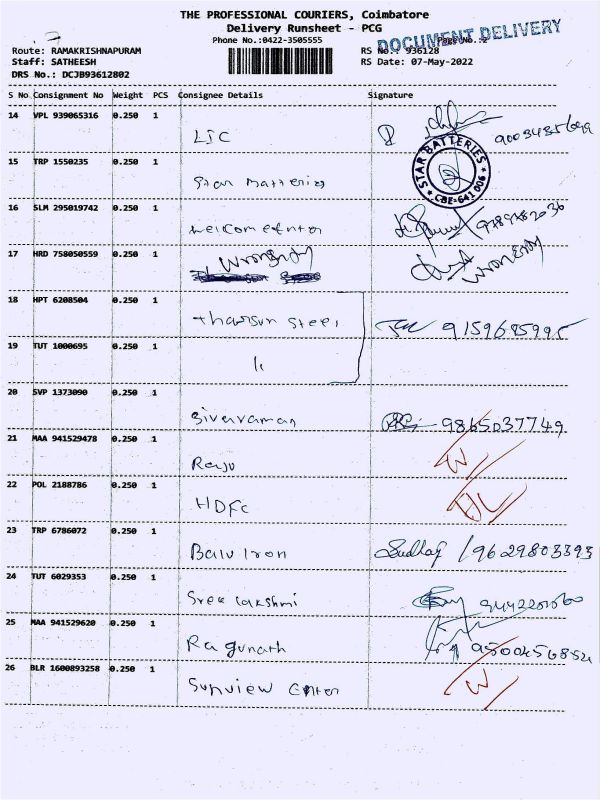 THE PROFESSIONAL COURIERS, Coimbatore
Delivery Runsheet - PCG
Phone No.:0422-3505555
DOCUMENT DELIVERY
Route: RAMAKRISHNAPURAM
RS No.: 936128
Staff: SATHEESH
RS Date: 07-May-2022
DRS No.: DCJB93612802
S No Consignment No Weight PCS Consignee Details Signature
14 VPL 939065316 0.250 1 LIC
15 TRP 1550235 0.250 1 Star Batteries STAR BATTERIES CBE-641 006
16 SLM 295019742 0.250 1 welcome center
17 HRD 758050559 0.250 1 Wrongndy
18 HPT 6208504 0.250 1 steel 9159685995
19 TUT 1000695 0.250 1 11
20 SVP 1373090 0.250 1 Sivaraman 9865037749
21 MAA 941529478 0.250 1 Raju W
22 POL 2188786 0.250 1 HDFC
23 TRP 6786072 0.250 1 Balu Iron 9629803393
24 TUT 6029353 0.250 1 Sree Lakshmi
25 MAA 941529620 0.250 1 Ragunath
26 BLR 1600893258 0.250 1 Sunview Center W